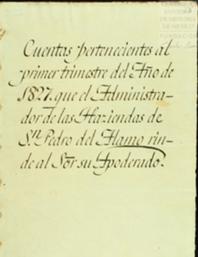 Cuentas pertenecientes al
primer trimestre del Año de
1827. que el Administra-
dor de las Haziendas de
Sn. Pedro del Alamo rin-
de al Sör su Apoderado.